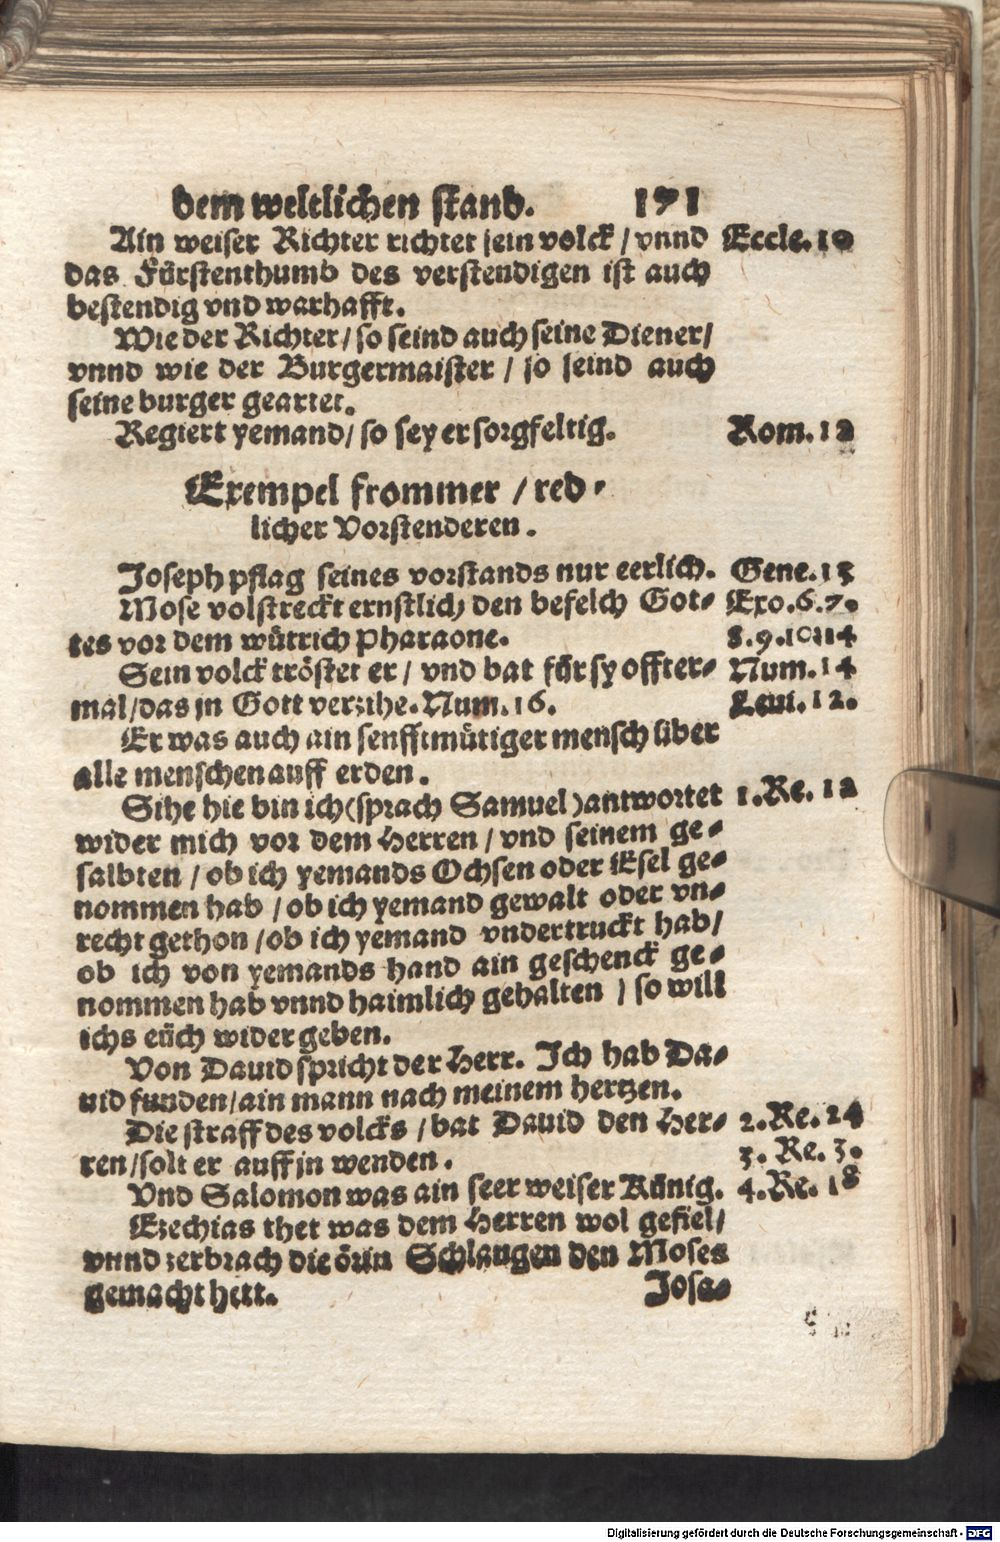 dem weltlichen stand. 171
Ain weiser Richter richtet sein volck / vnnd Eccle. 10
das Fürstenthumb des verstendigen ist auch
bestendig vnd warhafft.
Wie der Richter / so seind auch seine Diener /
vnnd wie der Burgermaister / so seind auch
seine burger geartet.
Regiert yemand / so sey er sorgfeltig. Rom. 12
Exempel frommer / red-
licher Vorstenderen.
Joseph pflag seines vorstands nur eerlich. Gene. 15
Mose volstreckt ernstlich den befelch Got- Exo. 6. 7.
tes vor dem wütrich Pharaone. 8. 9. 10 11 4
Sein volck tröstet er / vnd bat für sy offter- Num. 14
mal / das jn Gott verzihe. Num. 16. Leui. 12.
Er was auch ain senfftmütiger mensch über
alle menschen auff erden.
Sihe hie bin ich (sprach Samuel) antwortet 1. Re. 12
wider mich vor dem Herren / vnd seinem ge-
salbten / ob ich yemands Ochsen oder Esel ge-
nommen hab / ob ich yemand gewalt oder vn-
recht gethon / ob ich yemand vndertruckt hab /
ob ich von yemands hand ain geschenck ge-
nommen hab vnnd haimlich gehalten / so will
ichs eüch wider geben.
Von Dauid spricht der Herr. Ich hab Da-
uid funden / ain mann nach meinem hertzen.
Die straff des volcks / bat Dauid den Her- 2. Re. 24
ren / solt er auff jn wenden. 3. Re. 3.
Vnd Salomon was ain seer weiser Künig. 4. Re. 18
Ezechias thet was dem Herren wol gefiel /
vnnd zerbrach die örin Schlangen den Moses
gemacht hett. Josa-
Digitalisierung gefördert durch die Deutsche Forschungsgemeinschaft - DFG